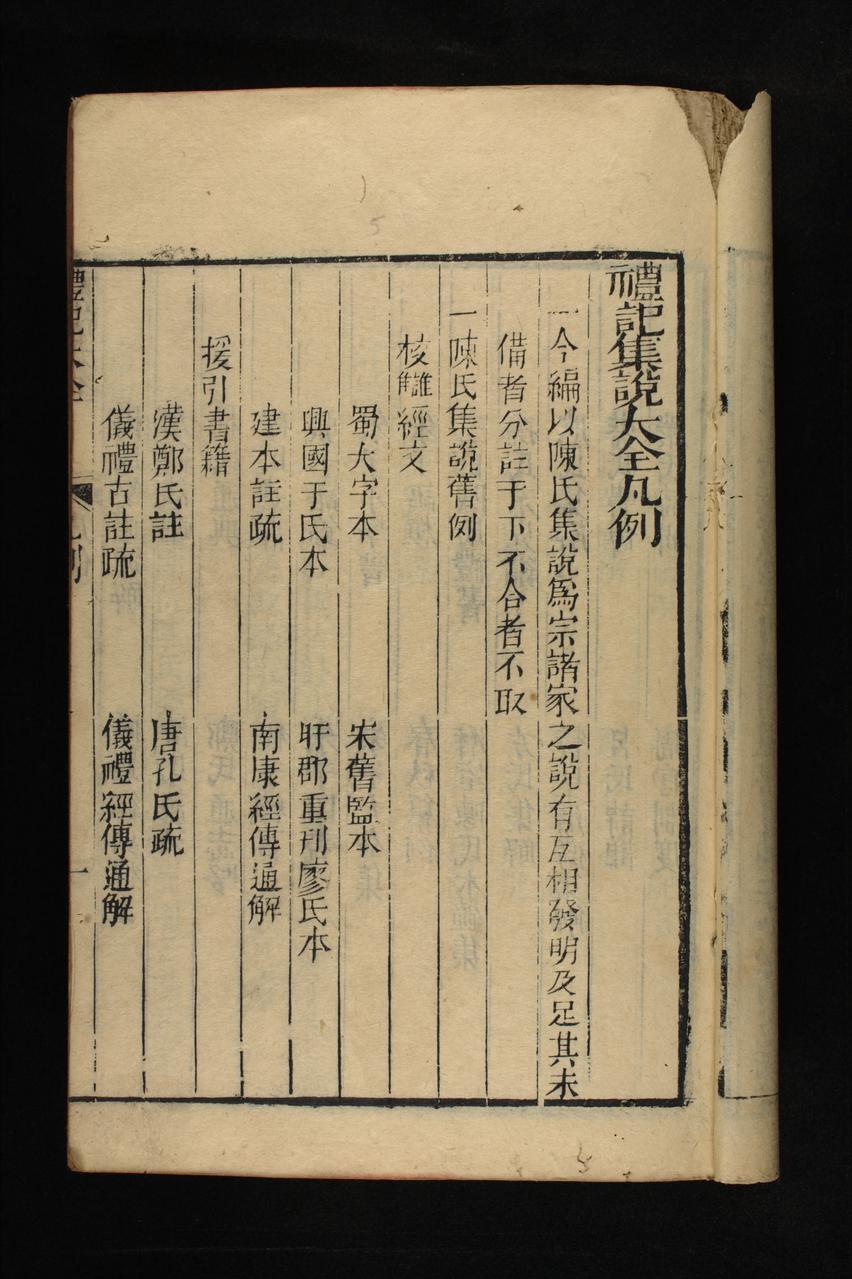 禮記集說大全凡例
一今編以陳氏集說爲宗諸家之說有互相發明及足其未
備者分註于下不合者不取
一陳氏集說舊例
校讎經文
蜀大字本 宋舊監本
興國于氏本 盱郡重刊廖氏本
建本註疏 南康經傳通解
援引書籍
漢鄭氏註 唐孔氏疏
儀禮古註疏 儀禮經傳通解
禮記大全 凡例 一